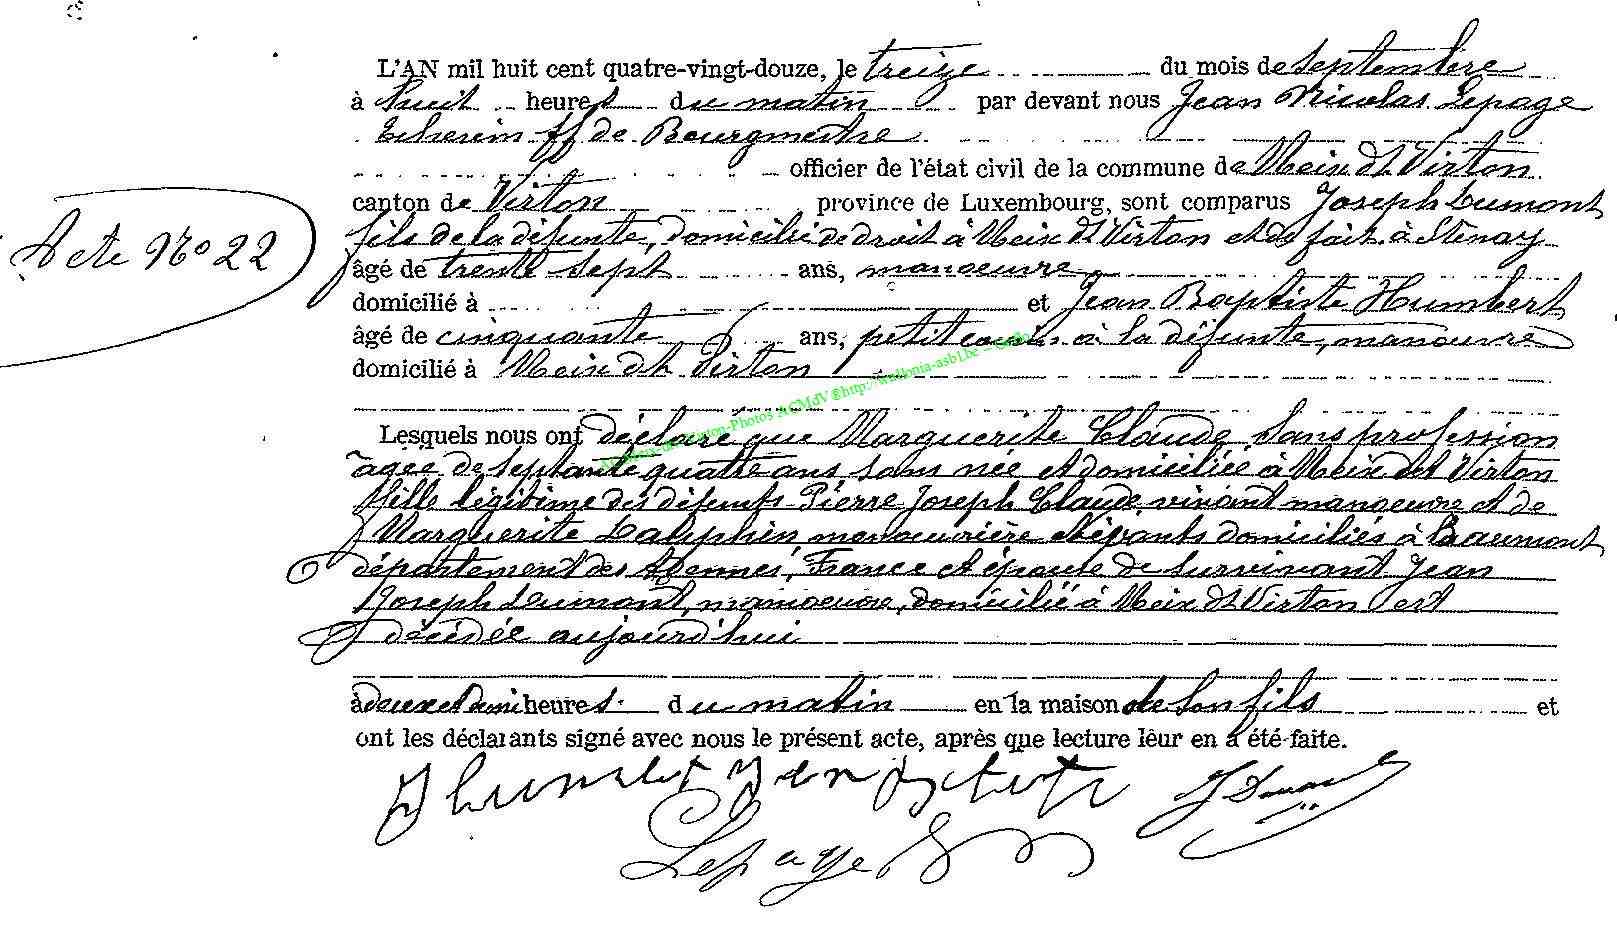 L'AN mil huit cent quatre-vingt-douze, le treize du mois de septembre
à huit heures du matin par devant nous Jean Nicolas Lepage
Echevin ff de Bourgmestre
officier de l'état civil de la commune de Meix dt Virton
canton de Virton province de Luxembourg, sont comparus Joseph Dumont
fils de la défunte, domicilié de droit à Meix dt Virton et de fait à Stenay
Acte Nro 22
âgé de trente sept ans, manoeuvre
domicilié à et Jean Baptiste Humbert
âgé de cinquante ans, petit cousin à la défunte, manoeuvre
domicilié à Meix dt Virton
Lesquels nous ont déclaré que Marguerite Claude, sans profession
âgée de septante quatre ans, née et domiciliée à Meix dt Virton
fille légitime des défunts Pierre Joseph Claude vivant manoeuvre et de
Marguerite manoeuvrière domiciliés à
département des France et épouse de survivant Jean
Joseph Dumont, manoeuvre, domicilié à Meix dt Virton est
décédée aujourd'hui
à deux et demi heures du matin en la maison de son fils et
ont les déclarants signé avec nous le présent acte, après que lecture leur en a été faite.
J Dumont
Lepage